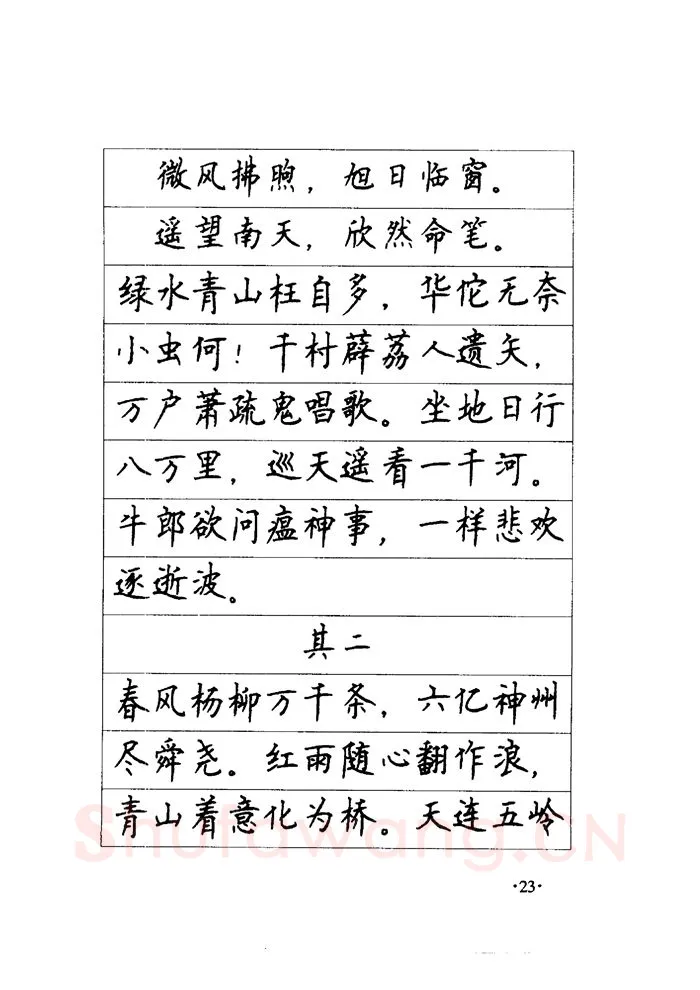 微风拂煦，旭日临窗。
遥望南天，欣然命笔。
绿水青山枉自多，华佗无奈
小虫何！千村薜荔人遗矢，
万户萧疏鬼唱歌。坐地日行
八万里，巡天遥看一千河。
牛郎欲问瘟神事，一样悲欢
逐逝波。
其二
春风杨柳万千条，六亿神州
尽舜尧。红雨随心翻作浪，
青山着意化为桥。天连五岭
Shufawang.CN
·23·